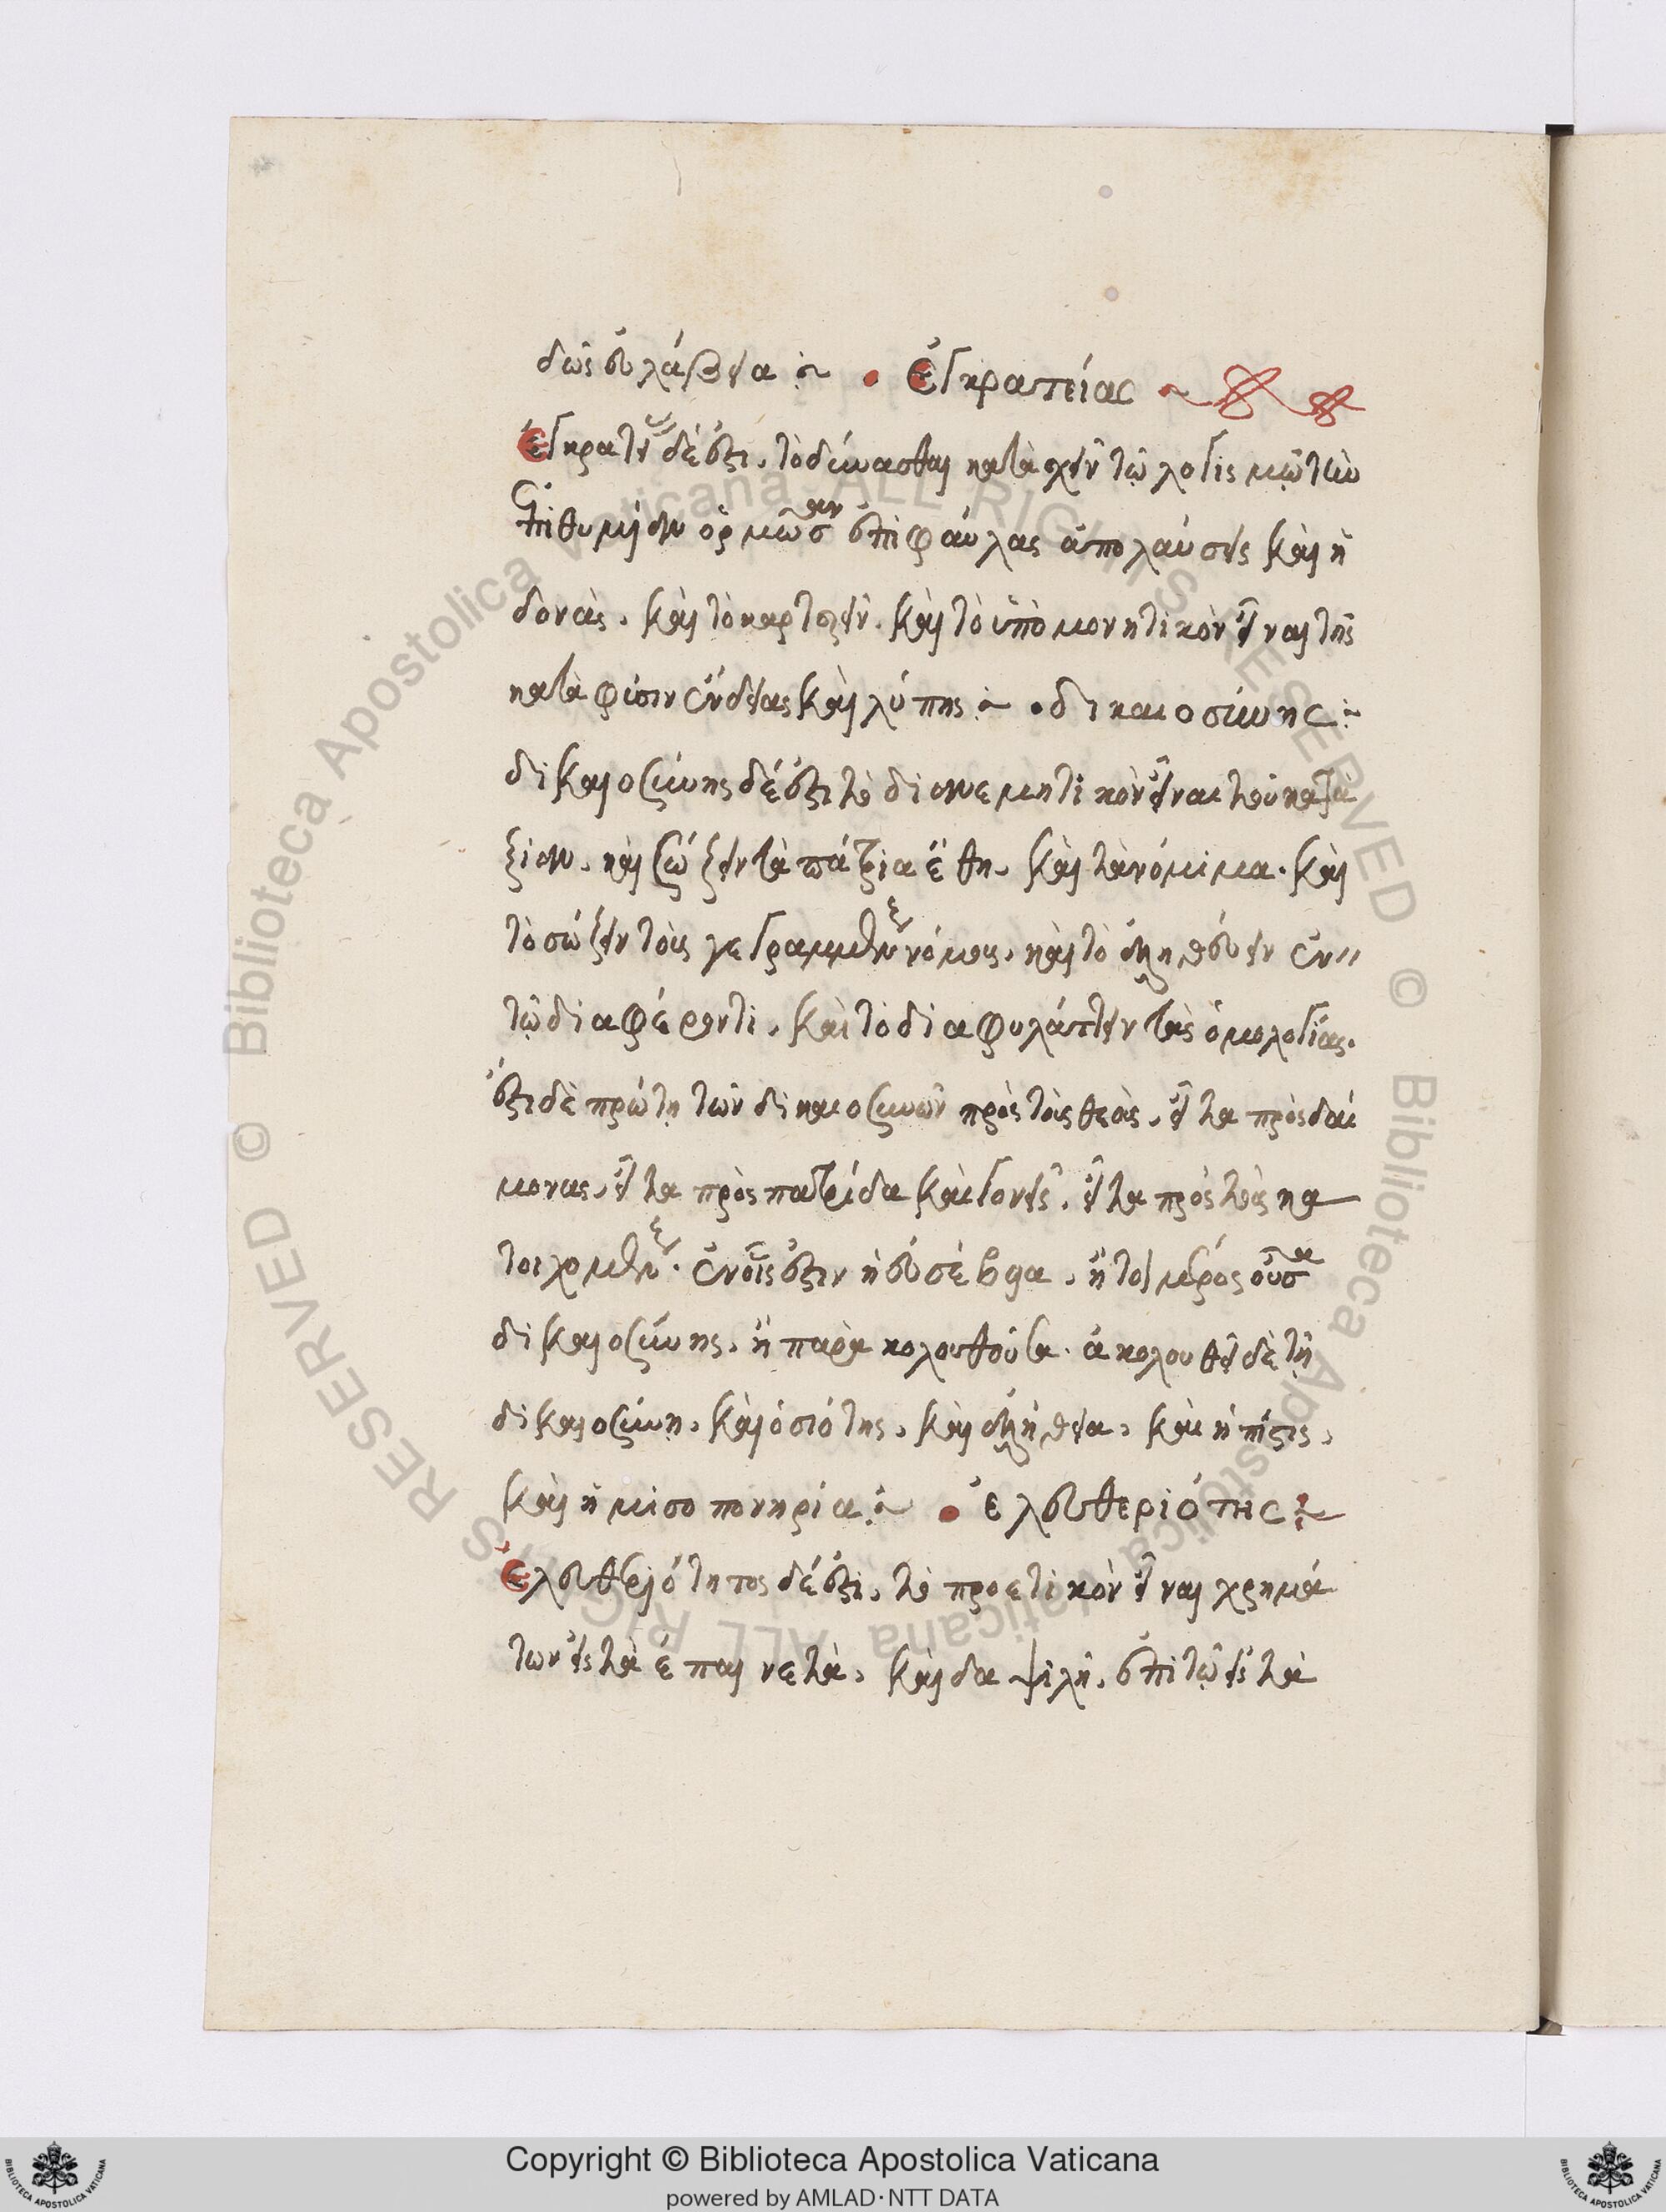 δὼς εὐλάβεια · ἐγκρατείας
ἐγκρατείας δέ ἐστι, τὸ δύνασθαι κατασχεῖν τῷ λογισμῷ τὴν
ἐπιθυμίαν ὁρμῶσαν ἐπὶ φαύλας ἀπολαύσεις καὶ ἡ
δονὰς, καὶ τὸ καρτερεῖν, καὶ τὸ ὑπομονητικὸν εἶναι τῆς
κατὰ φύσιν ἐνδείας καὶ λύπης · δικαιοσύνης
δικαιοσύνης δέ ἐστι τὸ διανεμητικὸν εἶναι τοῦ κατὰ
ξίαν, καὶ σώζειν τὰ πάτρια ἔθη, καὶ τὰ νόμιμα. καὶ
τὸ σώζειν τοὺς γεγραμμένους νόμους, καὶ τὸ ἀληθεύειν ἐν
τῷ διαφέροντι, καὶ τὸ διαφυλάττειν τὰς ὁμολογίας.
ἔστι δὲ πρώτη τῶν δικαιοσυνῶν πρὸς τοὺς θεοὺς, εἶτα πρὸς δαί
μονας, εἶτα πρὸς πατρίδα καὶ γονεῖς, εἶτα πρὸς τοὺς κα
τοιχομένους. ἐν οἷς ἐστιν ἡ εὐσέβεια, ἤτοι μέρος οὖσα
δικαιοσύνης, ἢ παρακολουθοῦσα. ἀκολουθεῖ δὲ τῇ
δικαιοσύνῃ, καὶ ὁσιότης, καὶ ἀλήθεια, καὶ ἡ πίστις,
καὶ ἡ μισοπονηρία · ἐλευθεριότης
ἐλευθεριότητος δέ ἐστι, τὸ προετικὸν εἶναι χρημά
των εἰς τὰ ἐπαινετὰ, καὶ δαψιλῆ, ἐπὶ τῷ εἰς τὰ
Copyright © Biblioteca Apostolica Vaticana
powered by AMLAD·NTT DATA
© Biblioteca Apostolica Vaticana ALL RIGHTS RESERVED
© Biblioteca Apostolica Vaticana ALL RIGHTS RESERVED
BIBLIOTECA APOSTOLICA VATICANA
BIBLIOTECA APOSTOLICA VATICANA